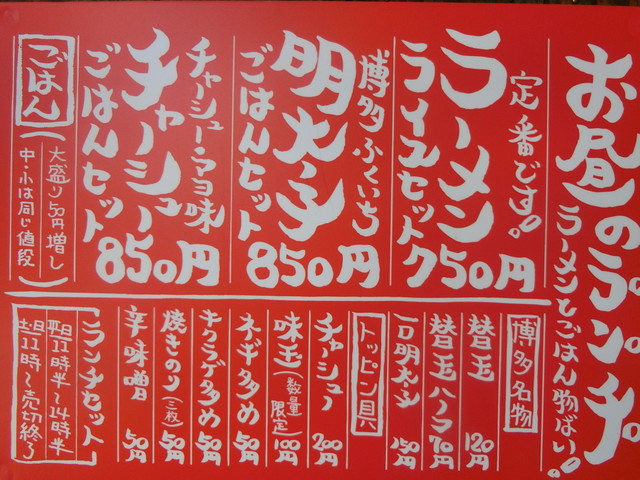 お昼のランチ
ラーメンとごはん物ばい!
定番です。
ラーメン
ライスセット 750円
博多ふくいち
明太子
ごはんセット 850円
チャーシュー・マヨ味
チャーシュー
ごはんセット 850円
ごはん
大盛り50円増し
中・小は同じ値段
博多名物
替玉 120円
替玉ハーフ 70円
一口明太子 150円
トッピン具
チャーシュー 200円
味玉(数量限定) 100円
ネギ多め 50円
キクラゲ多め 50円
焼きのり(三枚) 50円
辛味噌 50円
ランチセット
平日11時半~14時半
土日11時~売切終了